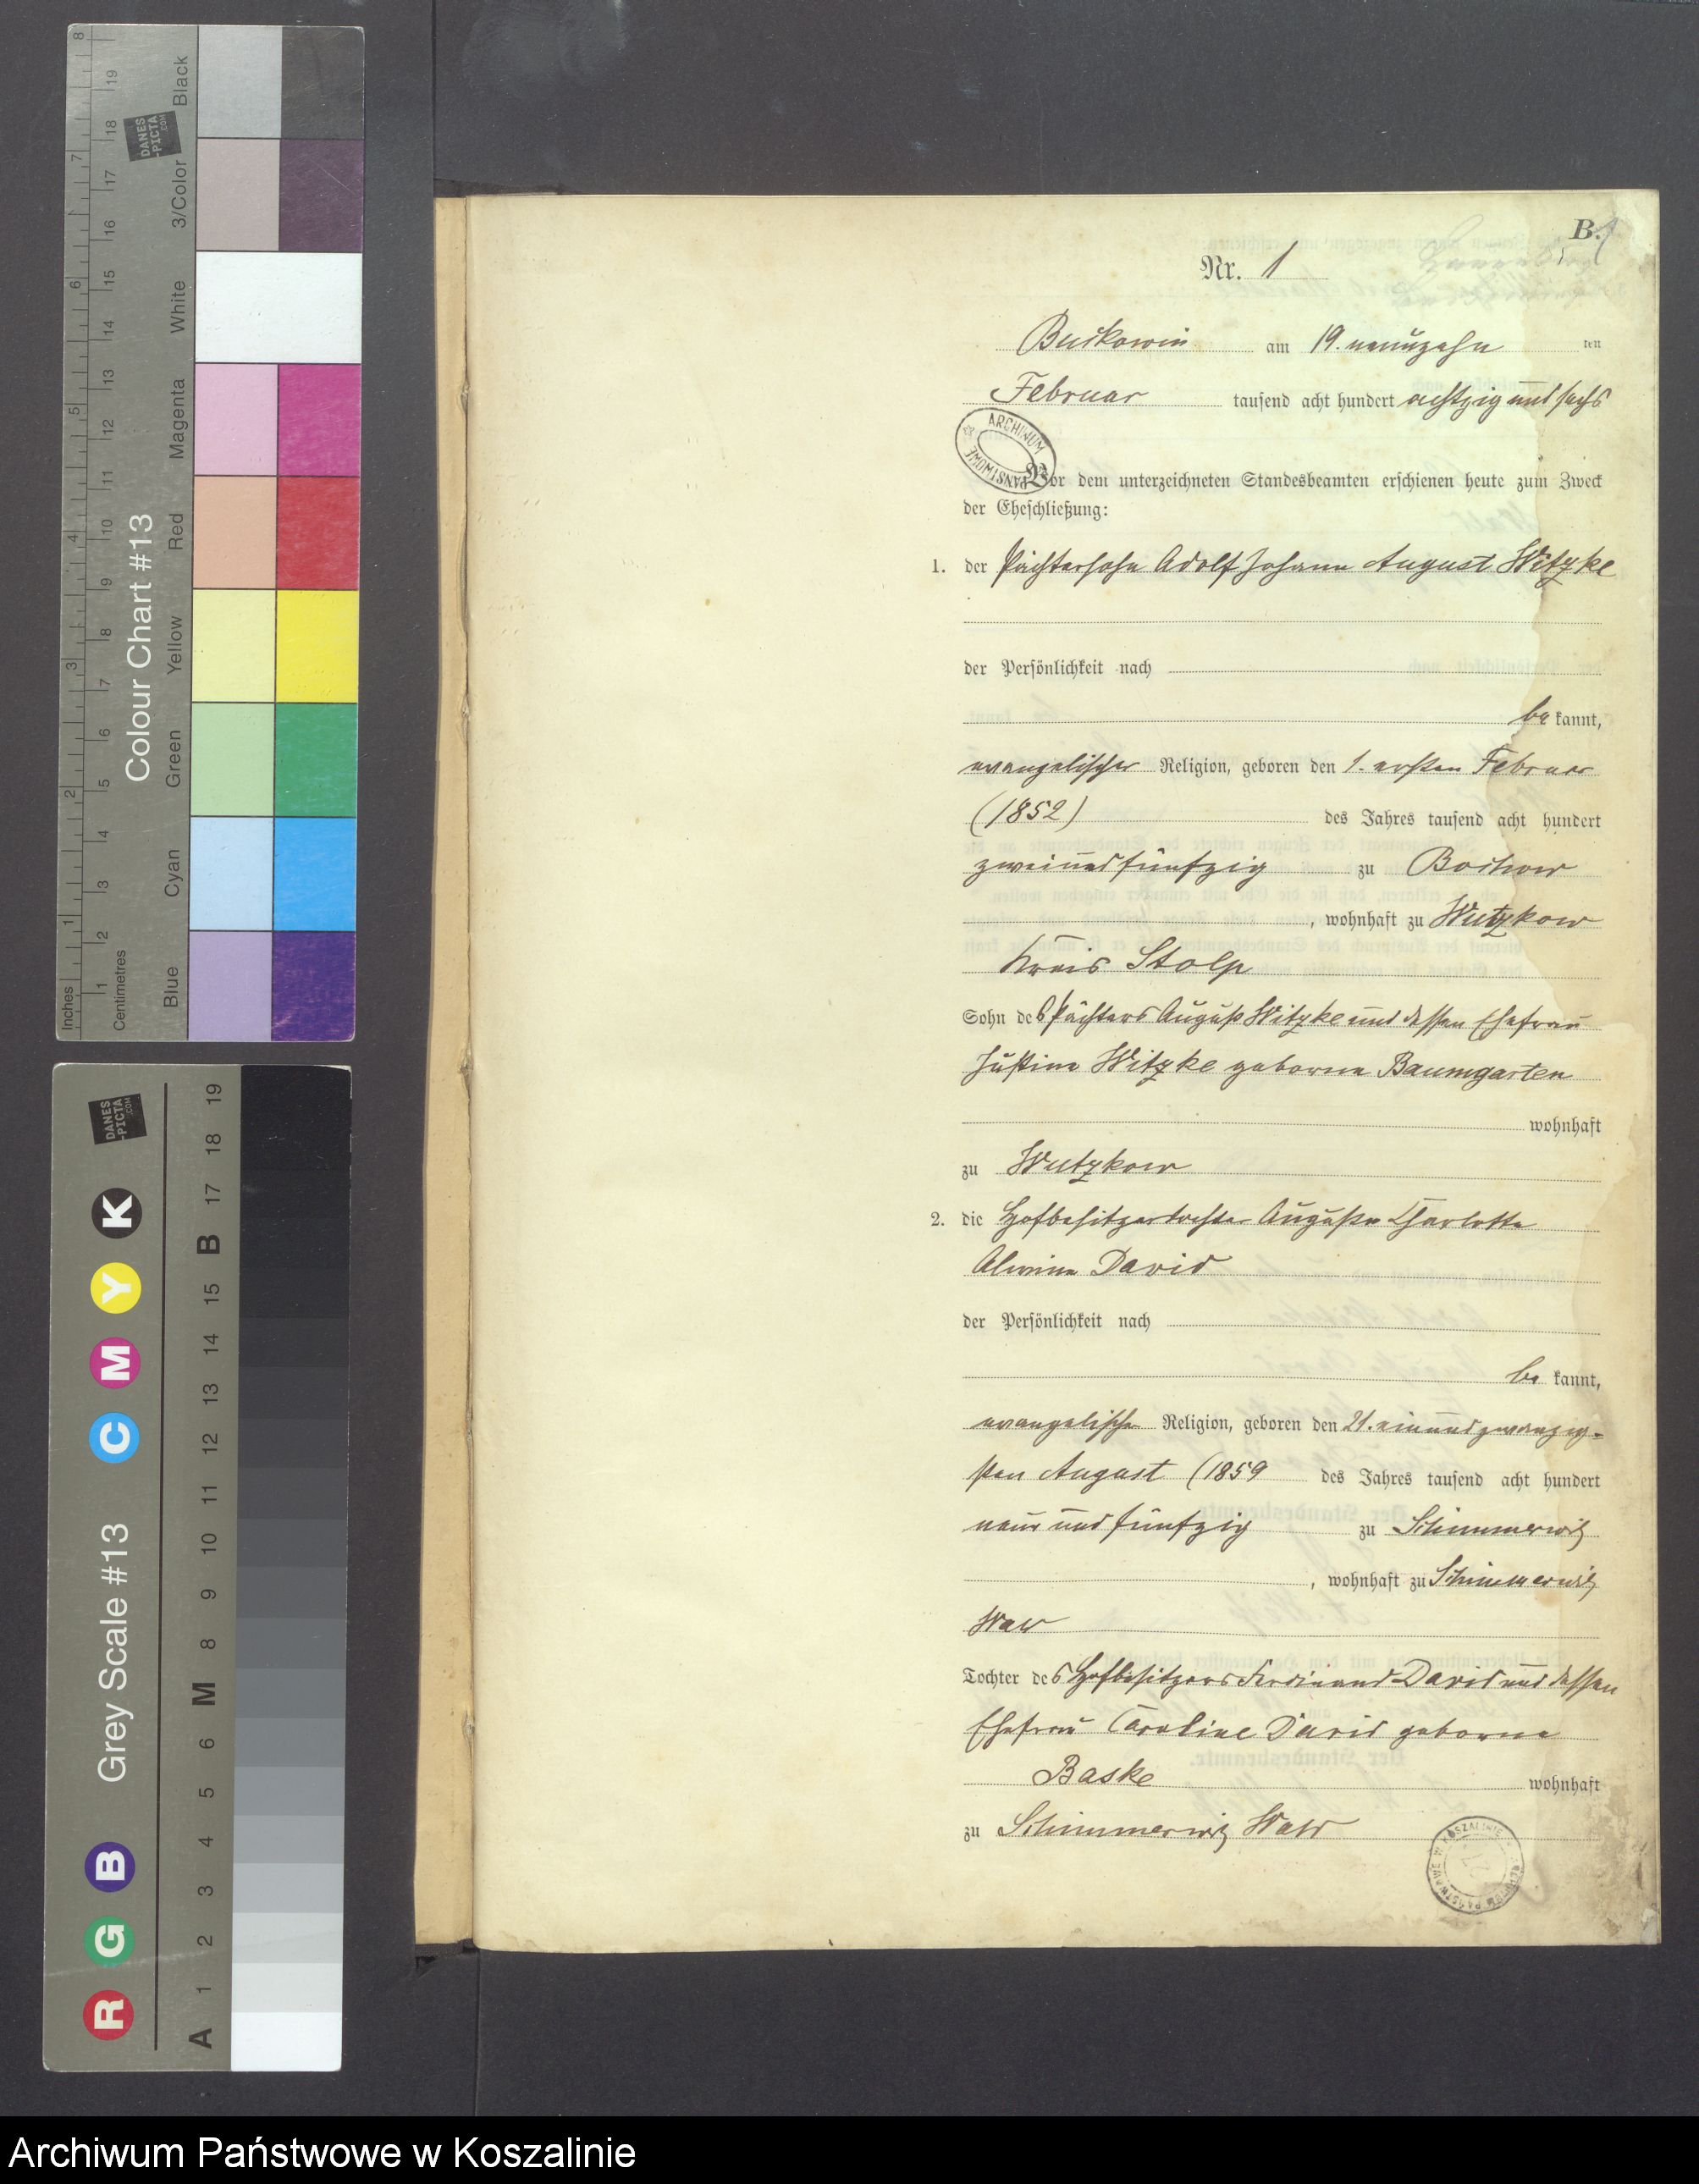 B.
Nr. 1
Buckowin am 19. neunzehn ten
Februar tausend acht hundert achtzig und sechs
ARCHIWUM PAŃSTWOWE
Vor dem unterzeichneten Standesbeamten erschienen heute zum Zweck
der Eheschließung:
1. der Pächtersohn Adolf Johann August Witzke
der Persönlichkeit nach
be kannt,
evangelischer Religion, geboren den 1. ersten Februar
(1852) des Jahres tausend acht hundert
zweiundfünfzig zu Bochow
, wohnhaft zu Wutzkow
Kreis Stolp
Sohn des Pächters August Witzke und dessen Ehefrau
Justine Witzke geborne Baumgarten
wohnhaft
zu Wutzkow
2. die Hofbesitzertochter Auguste Charlotte
Alwine David
der Persönlichkeit nach
be kannt,
evangelische Religion, geboren den 21. einundzwanzig-
sten August (1859 des Jahres tausend acht hundert
neun und fünfzig zu Schimmerwitz
, wohnhaft zu Schimmerwitz
Wald
Tochter des Hofbesitzers Ferdinand David und dessen
Ehefrau Caroline David geborne
Baske wohnhaft
zu Schimmerwitz Wald
Colour Chart #13
Black
3/Color
White
Magenta
Red
Yellow
Green
Cyan
Blue
Inches
1 2 3 4 5 6 7 8
Centimetres
1 2 3 4 5 6 7 8 9 10 11 12 13 14 15 16 17 18 19
DANES
-PICTA
.COM
Grey Scale #13
R G B C M Y K
A 1 2 3 4 5 6 M 8 9 10 11 12 13 14 15 B 17 18 19
DANES
-PICTA
.COM
Archiwum Państwowe w Koszalinie